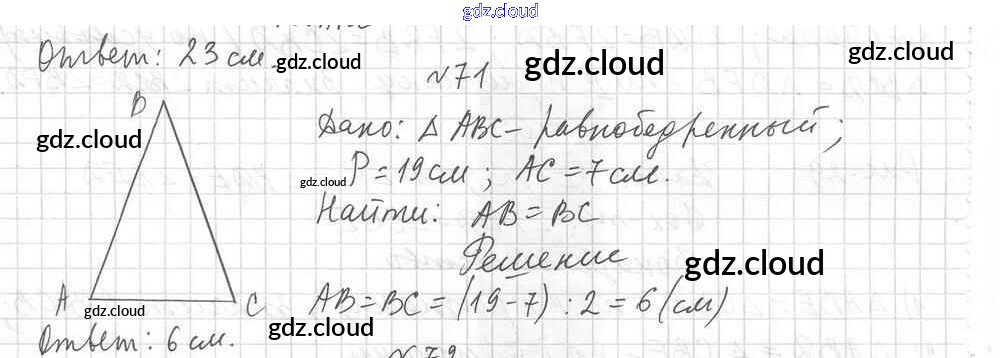 gdz.cloud
Ответ: 23 см. gdz.cloud
№71 gdz.cloud gdz.cloud
B
gdz.cloud Дано: Δ ABC – равнобедренный;
gdz.cloud P = 19 см; AC = 7 см.
Найти: AB = BC
Решение gdz.cloud
A C AB = BC = (19 – 7) : 2 = 6 (см)
gdz.cloud
Ответ: 6 см. gdz.cloud